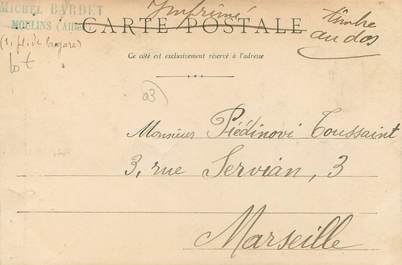 MICHEL BARDET
MOULINS (Allier)
Imprimé
timbre
au dos
CARTE POSTALE
Ce côté est exclusivement réservé à l'adresse
lot
03
Monsieur Piédinovi Toussaint
3, rue Servian, 3
Marseille